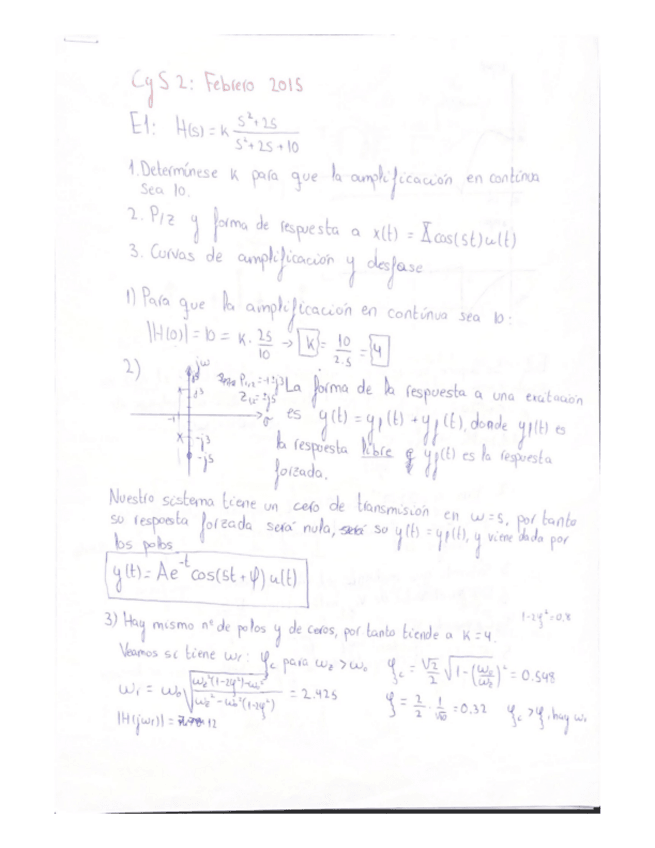 CyS 2: Febrero 2015
E1: H(s) = K (s²+25)/(s²+2s+10)
1. Determínese K para que la amplificación en continua
sea 10.
2. P/Z y forma de respuesta a x(t) = X cos(5t)u(t)
3. Curvas de amplificación y desfase
1) Para que la amplificación en continua sea 10:
|H(0)| = 10 = K · 25/10 → K = 10/2.5 = 4
2)
jω
σ
-1
x -j3
-j5
La forma de la respuesta a una excitación
es y(t) = yl(t) + yf(t), donde yl(t) es
la respuesta libre e yf(t) es la respuesta
forzada.
Nuestro sistema tiene un cero de transmisión en ω=5, por tanto
su respuesta forzada será nula, y(t) = yl(t), y viene dado por
los polos
y(t) = Ae^-t cos(5t + φ) u(t)
1-2ξ²=0.8
3) Hay mismo nº de polos y de ceros, por tanto tiende a K=4.
Veamos si tiene ωr: ξc para ωz > ωo ξc = √2/2 √(1-(ωo/ωz)²) = 0.548
ωr = ωo √((ωz²(1-2ξ²)-ωo²)/(ωz²-ωo²(1-2ξ²))) = 2.425
ξ = 2/2 · 1/√10 = 0.32 ξc > ξ, hay ωr
|H(jωr)| = 12